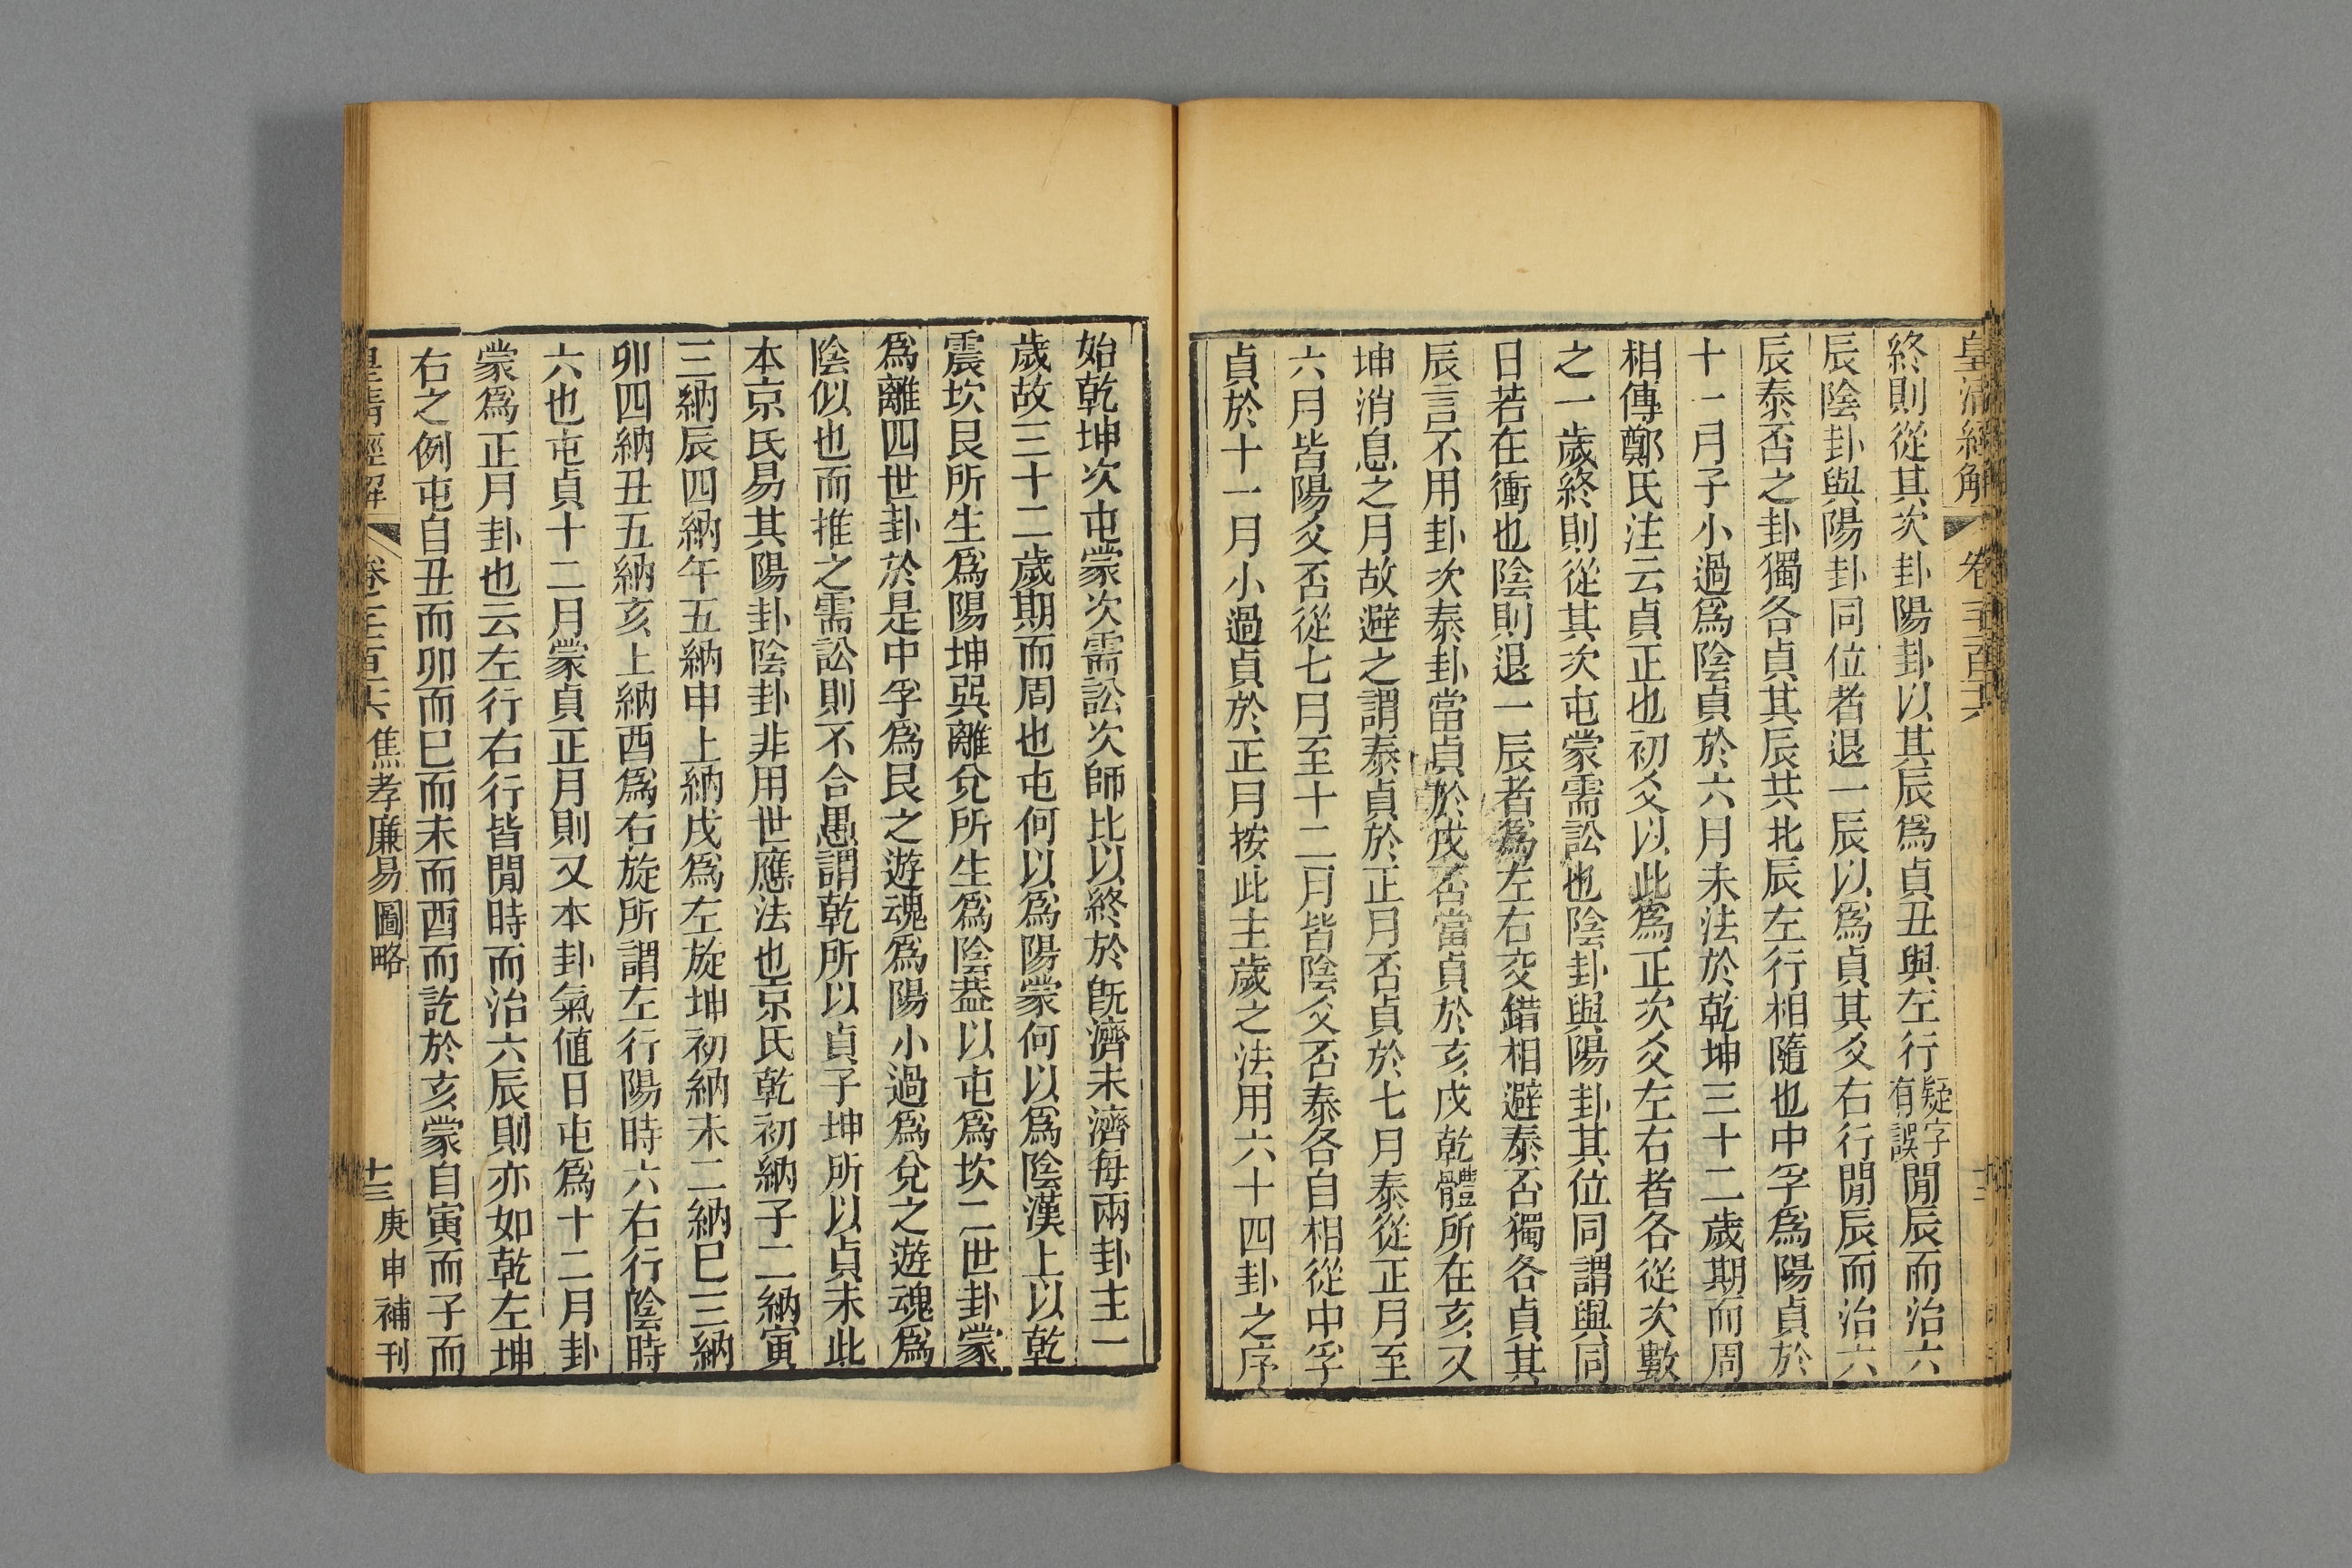 皇清經解
卷
十二
終則從其次卦陽卦以其辰爲貞丑與左行疑字有誤閒辰而治六
辰陰卦與陽卦同位者退一辰以爲貞其爻右行閒辰而治六
辰泰否之卦獨各貞其辰共北辰左行相隨也中孚爲陽貞於
十一月子小過爲陰貞於六月未法於乾坤三十二歲期而周
相傳鄭氏注云貞正也初爻以此爲正次爻左右者各從次數
之一歲終則從其次屯蒙需訟也陰卦與陽卦其位同謂與同
日若在衝也陰則退一辰者爲左右交錯相避泰否獨各貞其
辰言不用卦次泰卦當貞於戌否當貞於亥戌乾體所在亥又
坤消息之月故避之謂泰貞於正月否貞於七月泰從正月至
六月皆陽爻否從七月至十二月皆陰爻否泰各自相從中孚
貞於十一月小過貞於正月按此主歲之法用六十四卦之序
始乾坤次屯蒙次需訟次師比以終於旣濟未濟每兩卦主一
歲故三十二歲期而周也屯何以爲陽蒙何以爲陰漢上以乾
震坎艮所生爲陽坤巽離兌所生爲陰葢以屯爲坎二世卦蒙
爲離四世卦於是中孚爲艮之遊魂爲陽小過爲兌之遊魂爲
陰似也而推之需訟則不合愚謂乾所以貞子坤所以貞未此
本京氏易其陽卦陰卦非用世應法也京氏乾初納子二納寅
三納辰四納午五納申上納戌爲左旋坤初納未二納巳三納
卯四納丑五納亥上納酉爲右旋所謂左行陽時六右行陰時
六也屯貞十二月蒙貞正月則又本卦氣値日屯爲十二月卦
蒙爲正月卦也云左行右行皆閒時而治六辰則亦如乾左坤
右之例屯自丑而卯而巳而未而酉而訖於亥蒙自寅而子而
皇清經解
卷三百六
焦孝廉易圖略
十三
庚申補刊